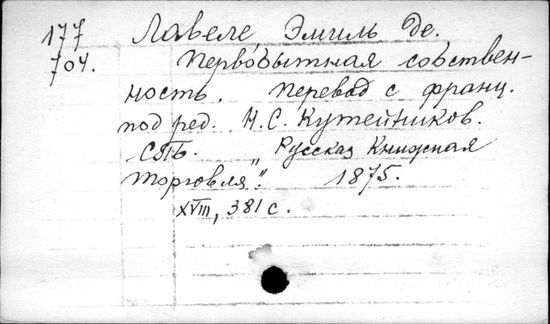 177 Лавеле, Эмиль де.
704. Первобытная собствен-
ность. Перевод с франц.
под ред. Н.С. Кутейников.
СПБ. „Русская Книжная
Торговля". 1875.
XVIII, 381 с.